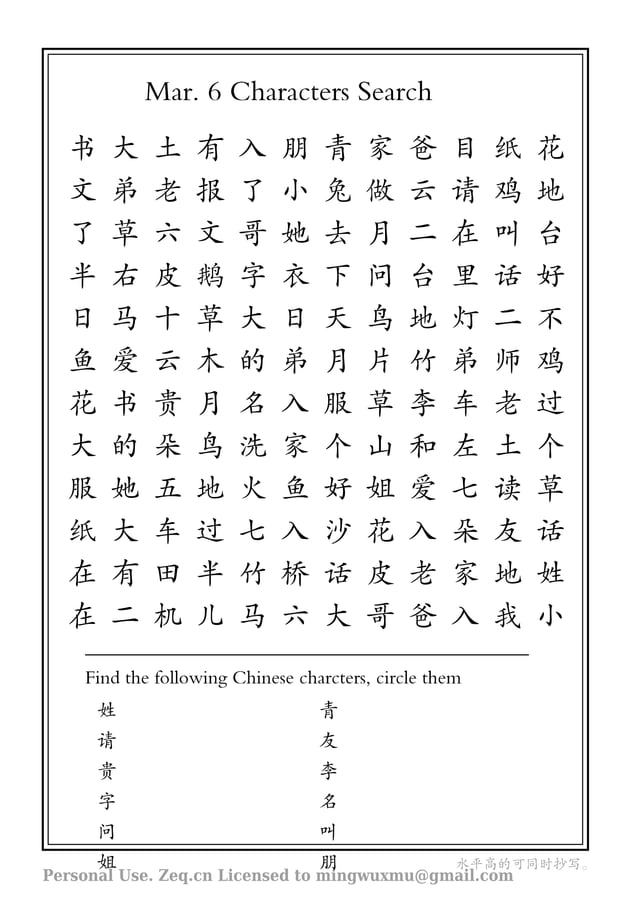 Mar. 6 Characters Search
书 大 土 有 入 朋 青 家 爸 目 纸 花
文 弟 老 报 了 小 兔 做 云 请 鸡 地
了 草 六 文 哥 她 去 月 二 在 叫 台
半 右 皮 鹅 字 衣 下 问 台 里 话 好
日 马 十 草 大 日 天 鸟 地 灯 二 不
鱼 爱 云 木 的 弟 月 片 竹 弟 师 鸡
花 书 贵 月 名 入 服 草 李 车 老 过
大 的 朵 鸟 洗 家 个 山 和 左 土 个
服 她 五 地 火 鱼 好 姐 爱 七 读 草
纸 大 车 过 七 入 沙 花 入 朵 友 话
在 有 田 半 竹 桥 话 皮 老 家 地 姓
在 二 机 儿 马 六 大 哥 爸 入 我 小
Find the following Chinese charcters, circle them
姓 青
请 友
贵 李
字 名
问 叫
姐 朋
水平高的可同时抄写。
Personal Use. Zeq.cn Licensed to mingwuxmu@gmail.com